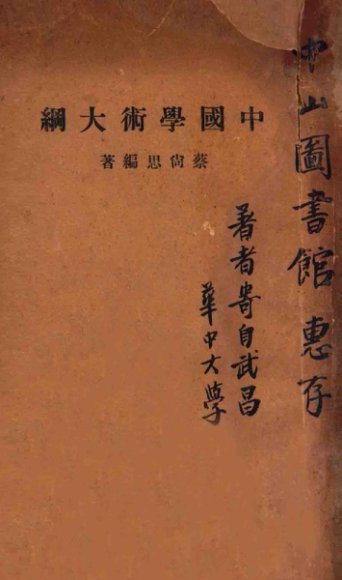 中國學術大綱
蔡尙思編著
中山圖書館惠存
著者寄自武昌
華中大學